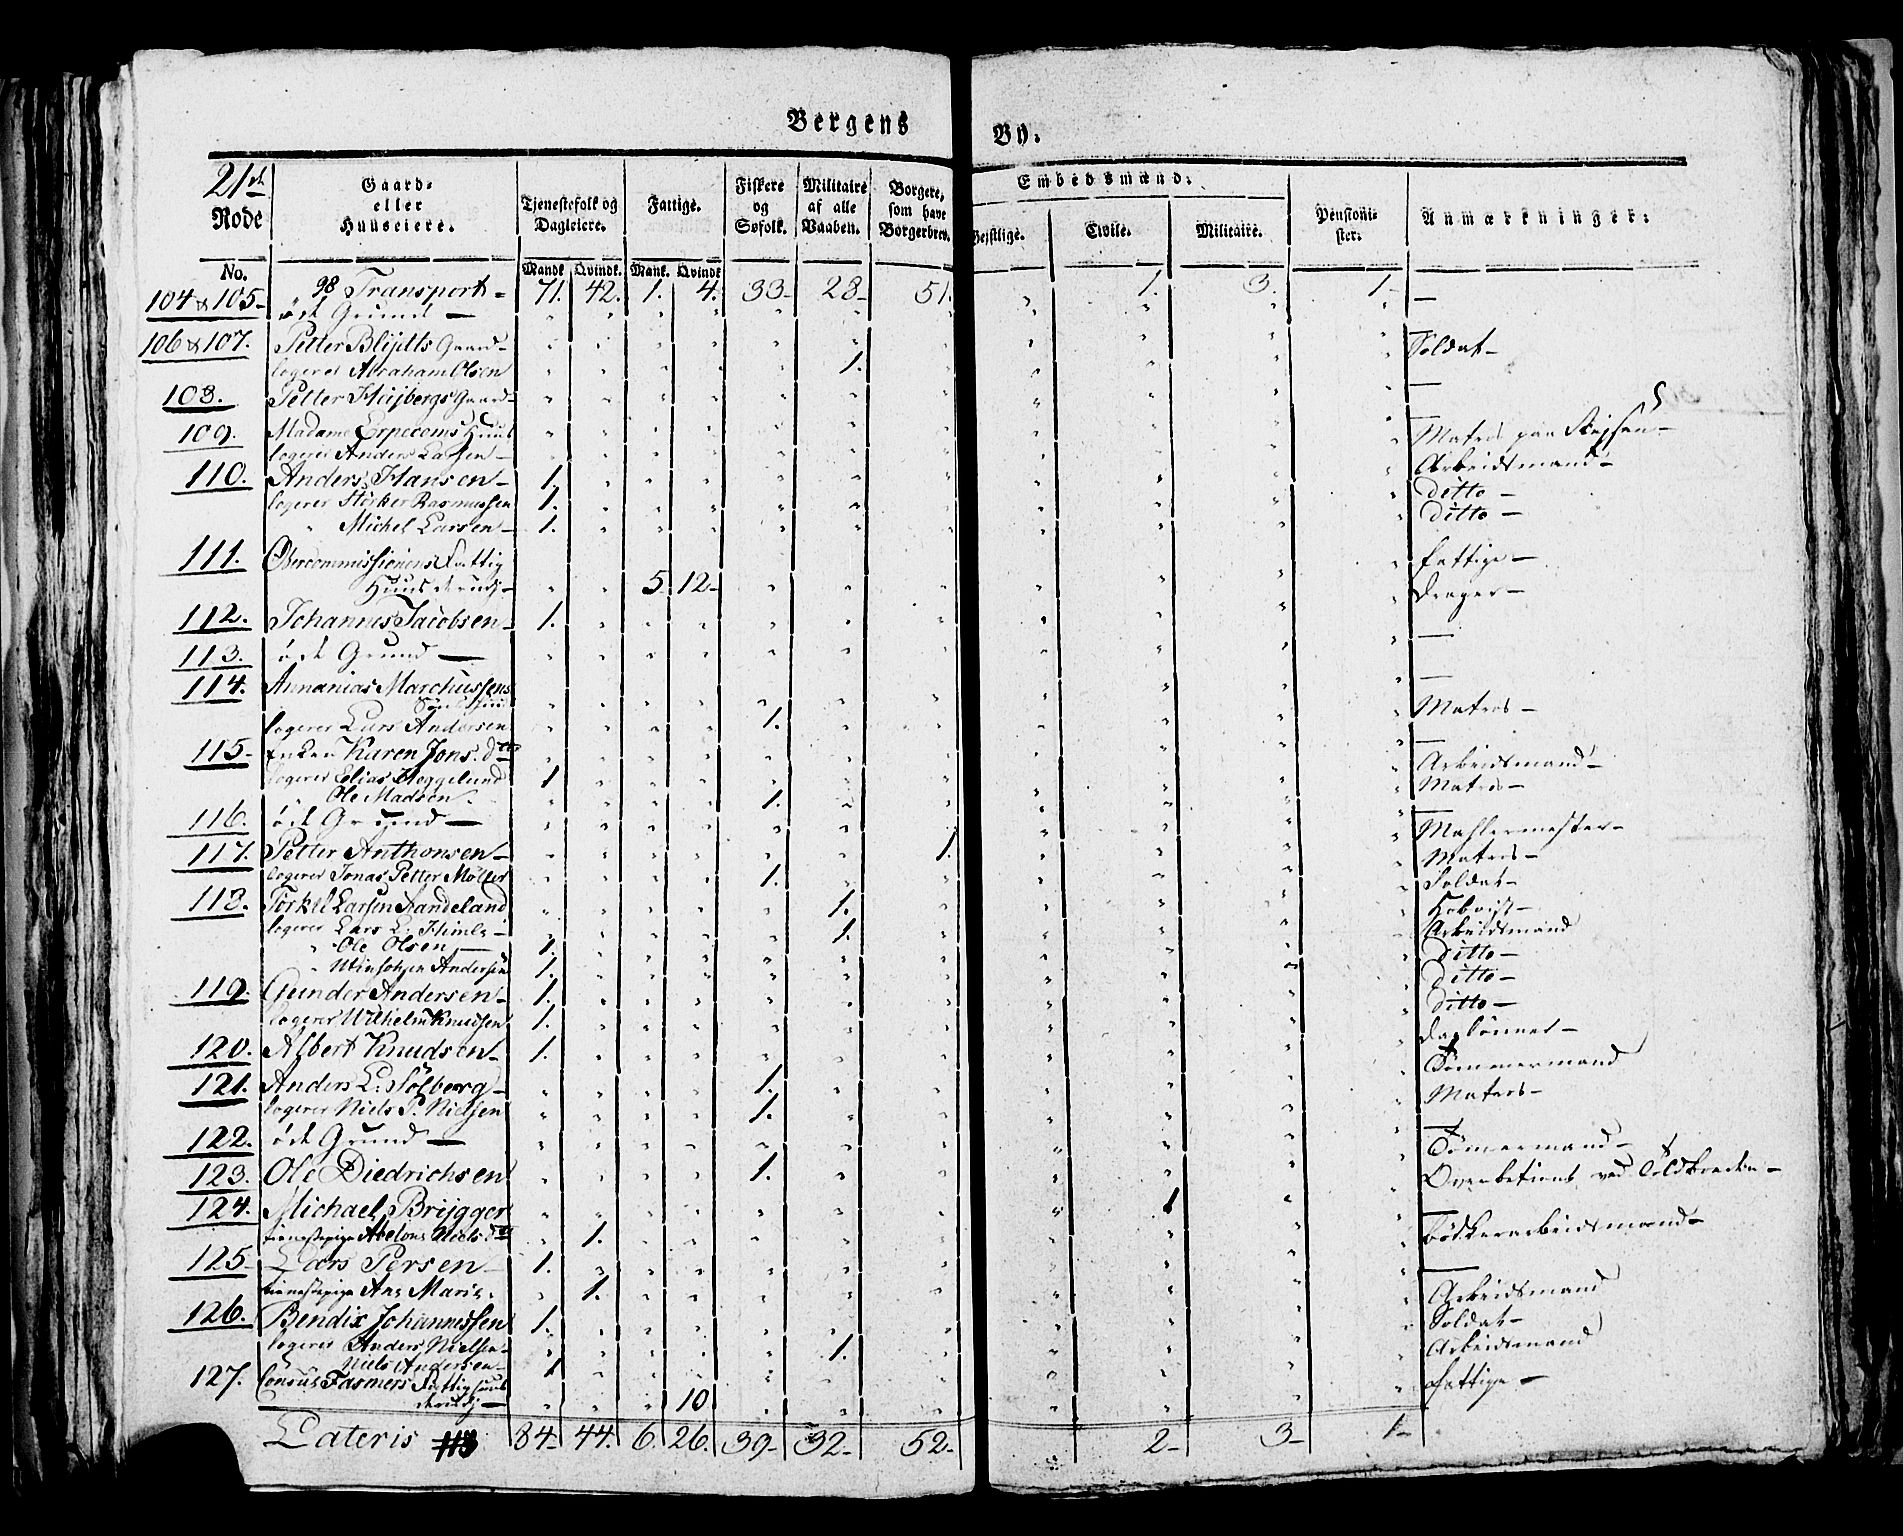 Bergens By.
21de Rode | Gaard- eller Huuseiere. | Tjenestefolk og Dagleiere. | Fattige. | Fiskere og Søfolk. | Militaire af alle Vaaben. | Borgere, som have Borgerbrev. | Embedsmænd: | Pensionister. | Anmærkninger:
Geistlige. | Civile. | Militaire.
No. | Mandk | Qvindk. | Mank. | Qvindk
98 Transport | 71. | 42. | 1. | 4. | 33 | 28 | 51. | " | 1. | 3. | 1 | —
104 & 105 | öde Grund —
106 & 107. | Petter Blijdts Gaard —
logerer Abraham Olsen | 1. | Soldat —
108. | Petter Heijbergs Gaard — | —
109. | Madame Erpecoms Huus | —
logerer Anders Larsen — | Matros paa Rejsen —
110. | Anders Hansen — | 1. | Arbeidsmand —
logerer Störker Rasmussen | 1. | ditto —
" Michel Larsen — | 1. | ditto —
111. | Overcommissionens Fattig
Huus | 5. | 12 | fattige —
112. | Johannes Jacobsen — | 1. | Drager —
113. | öde Grund — | —
114. | Annanias Marchussens
logerer Lars Andersen | 1. | Matros —
115 | Enken Karen Jons. dtr | —
logerer Elias Heggelund | 1 | Arbeidsmand —
Ole Madsen. | 1. | Matros —
116. | öde Grund — | —
117. | Petter Anthonsen — | 1. | Mahlermester —
logerer Jonas Petter Möller | 1. | Matros —
118. | Torkel Larsen Sandeland | 1. | Soldat —
logerer Lars L. Himle — | 1. | Hobvist —
" Ole Olsen — | 1. | Arbeidsmand
" Andersen | 1. | ditto —
119. | Gunder Andersen — | 1. | ditto —
logerer Wilhelm Knudsen | 1. | ditto —
120. | Albert Knudsen — | 1. | daglönner —
121. | Anders L. Sölberg — | 1. | Tömmermand
logerer Niels P. Nielsen | 1. | Matros —
122. | öde Grund — | —
123. | Ole Diedrichsen | 1. | Tömermand —
124. | Michael Brijgger | 1 | ved Toldboden —
tienestepige Abelone Niels dtr | 1. | —
125 | Lars Persen — | 1. | bödkerarbeidsmand —
tienestepige Ane Marie. | 1. | —
126. | Bendix Johannessen | 1. | Arbeidsmand
logerer Anders Nielsen — | 1. | Soldat —
Niels Andersen — | 1 | Arbeidsmand
127. | Consul Fasmers Fattighuus | 10 | fattige —
Lateris 113 | 84 | 44. | 6. | 26. | 39 | 32 | 52 | 2 | 3 | 1